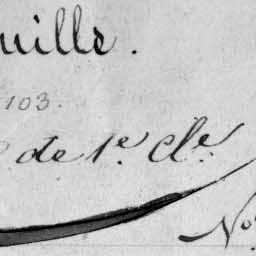 uille.
103.
de 1e. Cle.
No